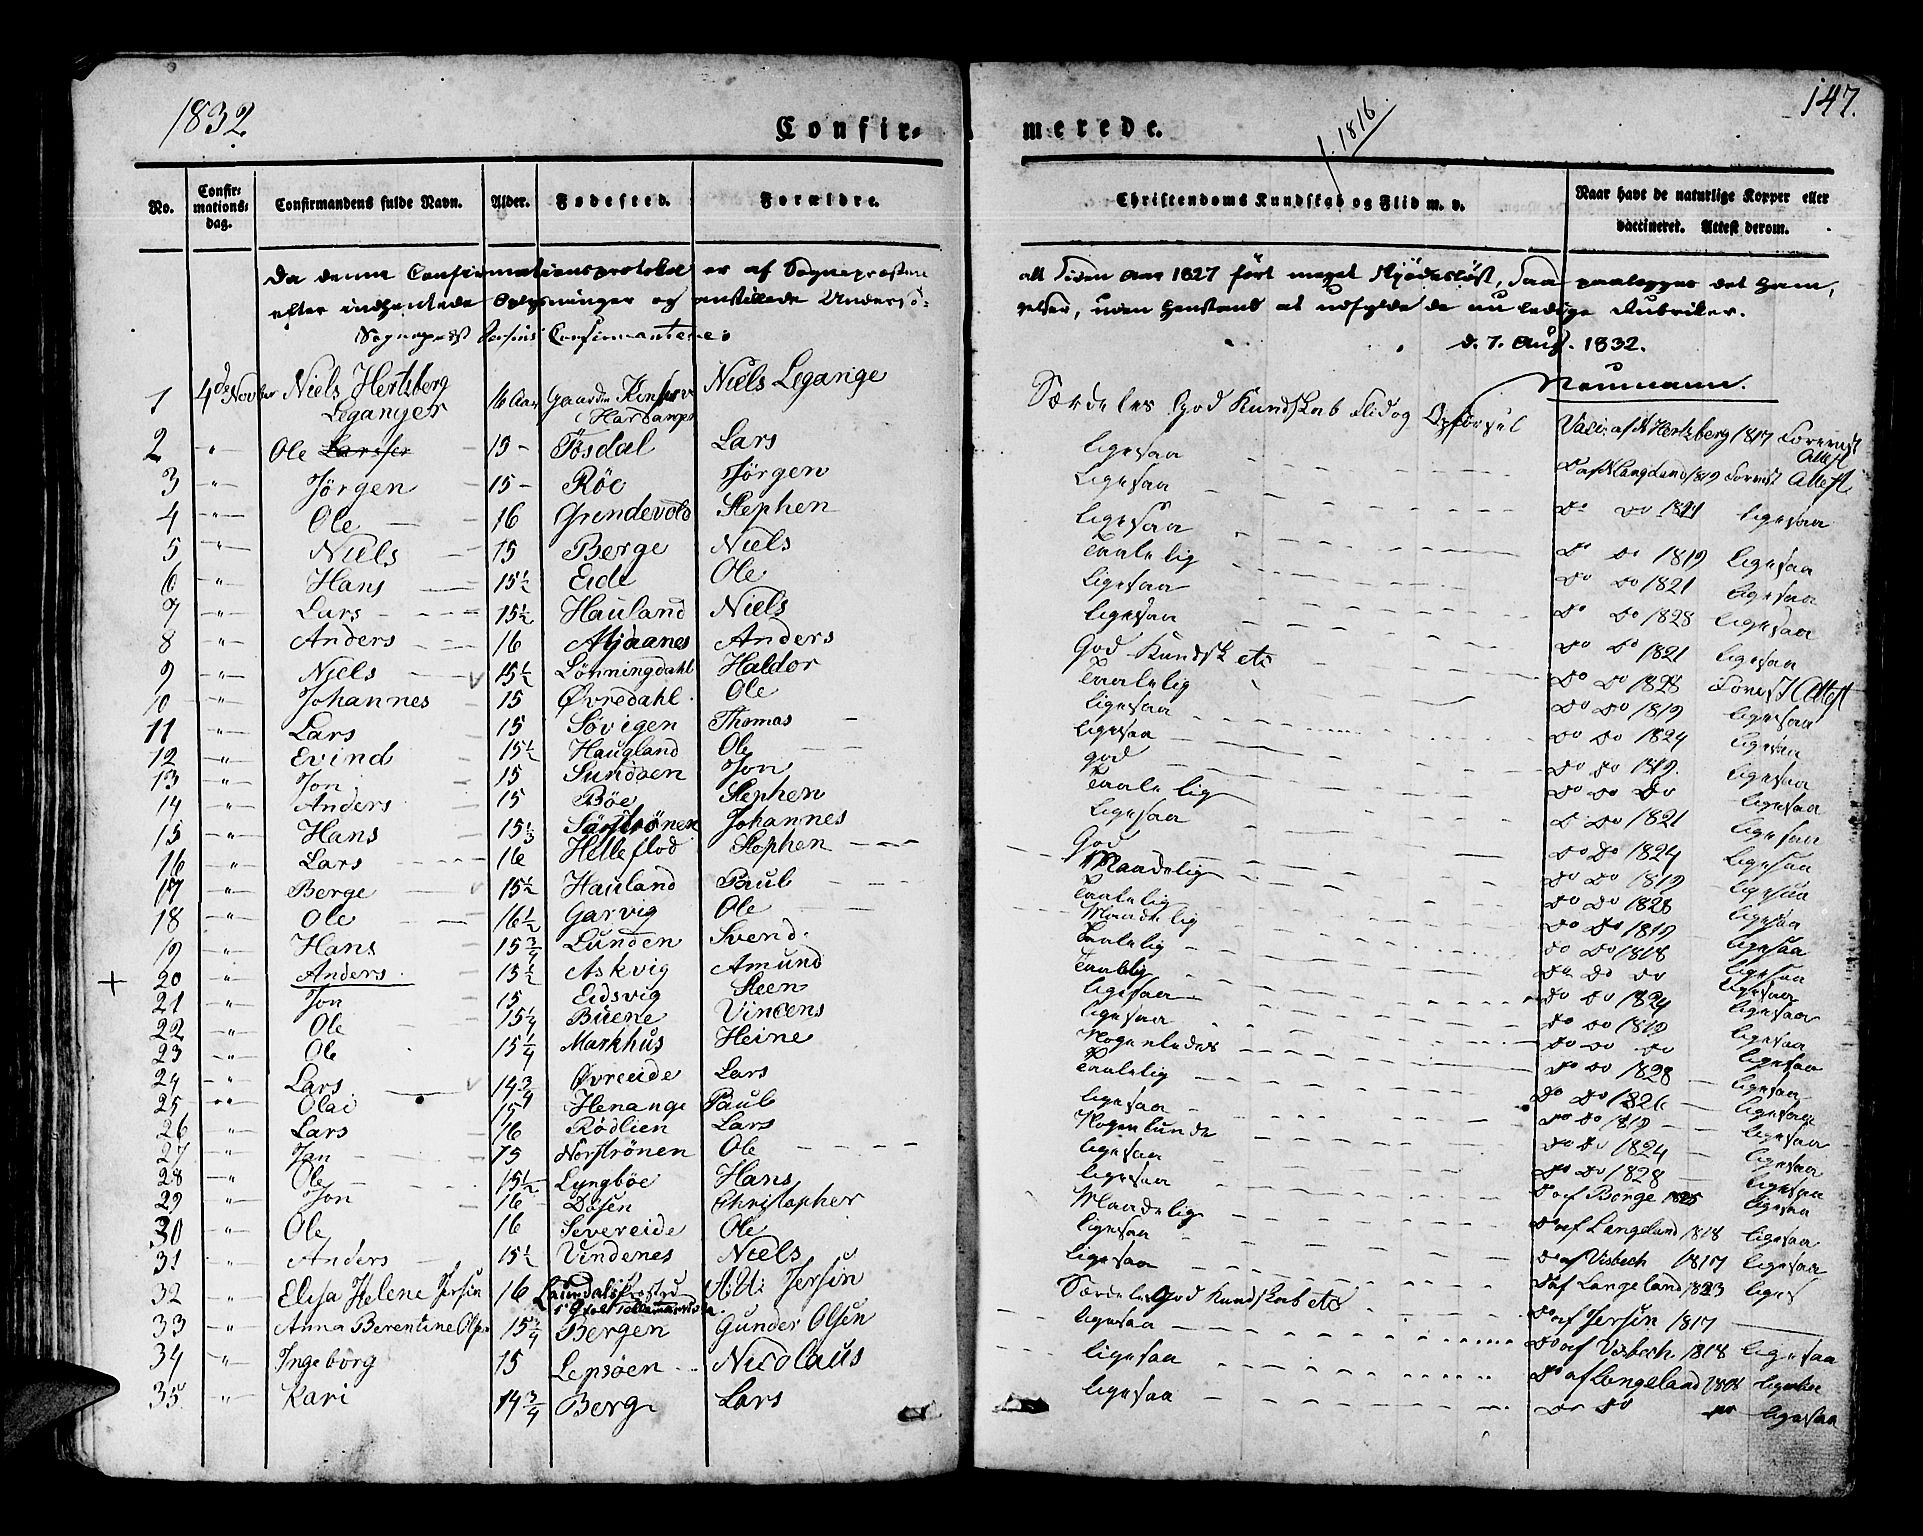 1832
Confir-
merede.
f. 1816.
147.
No.
Confir-
mations-
dag.
Confirmandens fulde Navn.
Alder.
Fødested.
Forældre.
Christendoms Kundskab og Flid m. v.
Naar havt de naturlige Kopper eller
vaccineret. Attest derom.
Da denne Confirmationsprotokol er af Sogneprosten alt siden Aar 1827 ført meget skjødesløst, saa paalegges det ham,
efter indhentede Oplysninger og anstillede Undersø- gelser, uden Henstand at udfylde de nu ledige Rubriker.
Sogneprest Jersins Confirmantene: d. 7. Aug. 1832.
Neumann.
1 4de Novber Niels Hertzberg Leganger 16 Aar Gaarden Kinservig Hardanger Niels Legange Særdeles God Kundskab Flid og Opførsel Vacc: af N Hertzberg 1817 Foreviist Attest
2 " Ole Larssen 15 Tøsdal Lars ligesaa Do af Langeland 1819 Foreviist Attest
3 " Jørgen 15 Røe Jørgen Ligesaa Do Do 1821 ligesaa
4 " Ole 16 Grindevold Stephen ligesaa Do Do 1819 ligesaa
5 " Niels 15 Berge Niels Taalelig Do Do 1821 ligesaa
6 " Hans 15½ Eide Ole ligesaa Do Do 1828 ligesaa
7 " Lars 15½ Hauland Niels ligesaa Do Do 1821 ligesaa
8 " Anders 16 Mjaanes Anders God Kundsk etc Do Do 1828 Foreviist Attest
9 " Niels 15½ Lønningdahl Haldor Taalelig Do Do 1819 ligesaa
10 " Johannes 15 Øvredahl Ole ligesaa Do Do 1824 ligesaa
11 " Lars 15 Søvigen Thomas ligesaa Do Do 1819. ligesaa
12 " Evind 15½ Haugland Ole god Do Do Do ligesaa
13 " Jon 15 Sundøen Jon Taalelig Do Do 1821 ligesaa
14 " Anders 15 Bøe Stephen Ligesaa Do Do 1824 ligesaa
15 " Hans 15⅓ Sørstrønen Johannes God Do Do 1819 ligesaa
16 " Lars 16 Helleflod Stephen Maadelig Do Do 1828 ligesaa
17 " Berge 15½ Hauland Paul Taalelig Do Do 1819 ligesaa
18 " Ole 16½ Garvig Ole Maadelig Do Do 1818 ligesaa
19 " Hans 15¾ Lunden Svend Taalelig Do Do Do ligesaa
+ 20 " Anders 15½ Askvig Amund Taalelig Do Do 1824 ligesaa
21 " Jon 15 Eidsvig Steen ligesaa Do Do 1819 ligesaa
22 " Ole 15¼ Buene Vincens ligesaa Do Do Do ligesaa
23 " Ole 15¼ Markhus Heine Nogenledes Do Do 1828 ligesaa
24 " Lars 14¾ Øvreeide Lars Taalelig Do Do 1826 ligesaa
25 " Olai 15 Henange Paul ligesaa Do Do 1819 ligesaa
26 " Lars 16 Rødlien Lars Nogenlunde Do Do 1824 ligesaa
27 " Jan 15 Norstrønen Ole ligesaa Do Do 1828 ligesaa
28 " Ole 15½ Lyngbøe Hans ligesaa Do af Berge 1825 ligesaa
29 " Jon 16 Døsen Christopher Maadelig Do af Langeland 1818 ligesaa
30 " Ole 16 Severeide Ole ligesaa Do af Visbech 1817 ligesaa
31 " Anders 15½ Vindenes Niels ligesaa Do af Langeland 1823 liges
32 " Elisa Helene Jersin 16 Jersin Særdeles God Kundskab etc Do af Jersin 1817
33 " Anna Berentine Ols 15¾ Bergen Gunder Olsen ligesaa Do af Visbech 1818 ligesaa
34 " Ingeborg 15 Lepsøen Nicolaus ligesaa Do af Langeland ligesaa
35 " Kari 14¾ Berg Lars ligesaa Do Do Do ligesaa